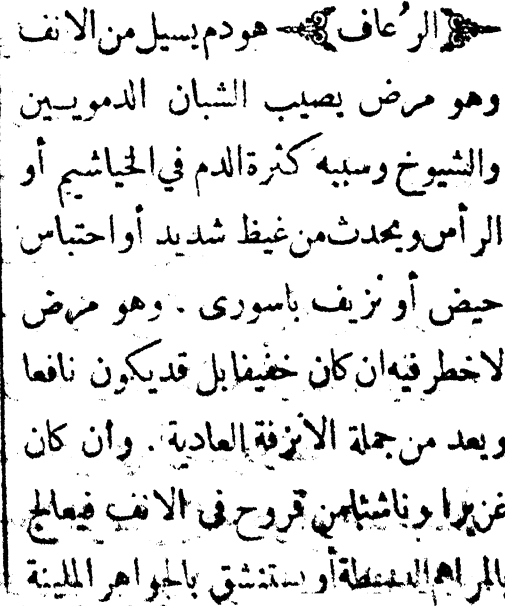 ﴿الرُعاف﴾ هو دم يسيل من الانف
وهو مرض يصيب الشبان الدمويين
والشيوخ وسببه كثرة الدم في الخياشيم أو
الرأس ويحدث من غيظ شديد أو احتباس
حيض أو نزيف باسورى . وهو مرض
لاخطر فيه ان كان خفيفا بل قد يكون نافعا
ويعد من جملة الانزفة العادية . وأن كان
غزيرا وناشئا من قروح فى الانف فيعالج
بالمراهم أو يستنشق بالجواهر الملينة